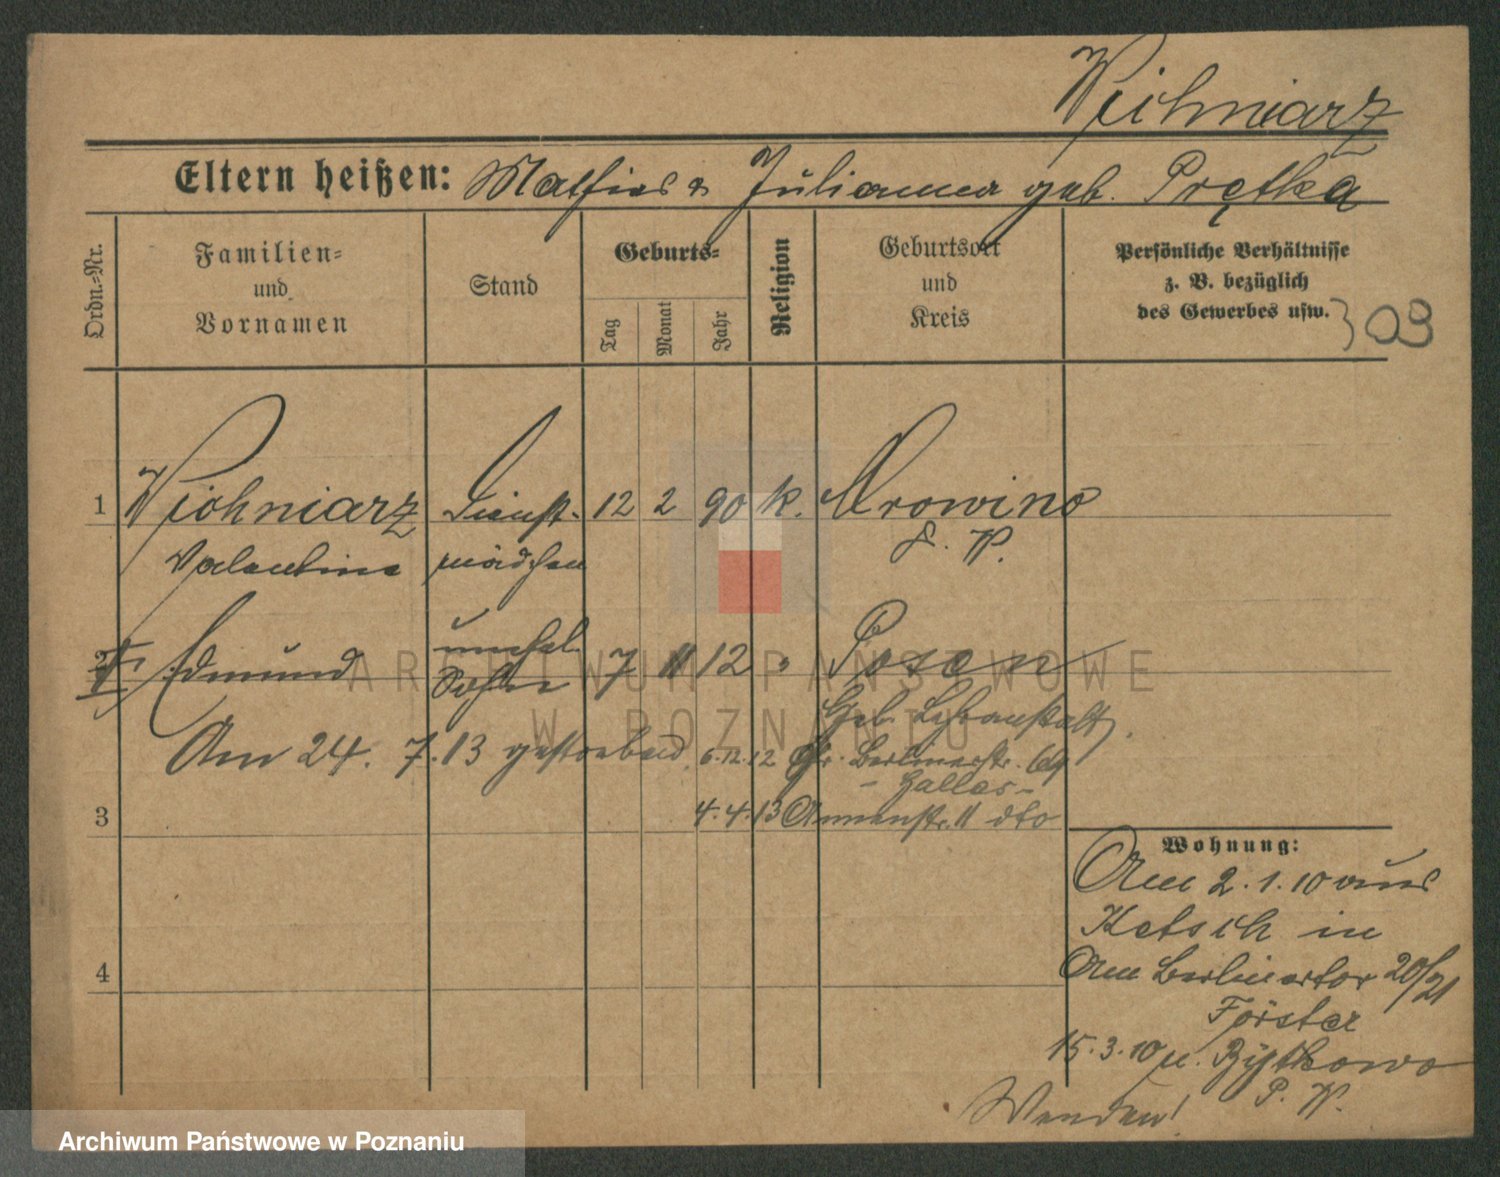 Wichniarz
Eltern heißen: Mathias & Julianna geb. Prętka
Ordn.=Nr.
Familien=
und
Vornamen
Stand
Geburts=
Tag
Monat
Jahr
Religion
Geburtsort
und
Kreis
Persönliche Verhältnisse
z. B. bezüglich
des Gewerbes usw.
09
1 Wichniarz Dienst- 12 2 90 k. Mrowino
Valentine mädchen P.
2 Edmund unehel. Sohn 7 11 12 " Posen
Geb. Lehranstalt
Am 24. 7. 13 gestorben 6.12.12 Gr. Berlinerstr. 69
- Gallas -
3 4.4.13 Annenstr. 11 dto
Wohnung:
Am 2.1.10 aus
Ketsch in
Am Berlinertor 20/21
Förster
15.3.10 n. Zytkowo
P. W.
4
Wenden!
ARCHIWUM PAŃSTWOWE
W POZNANIU
Archiwum Państwowe w Poznaniu